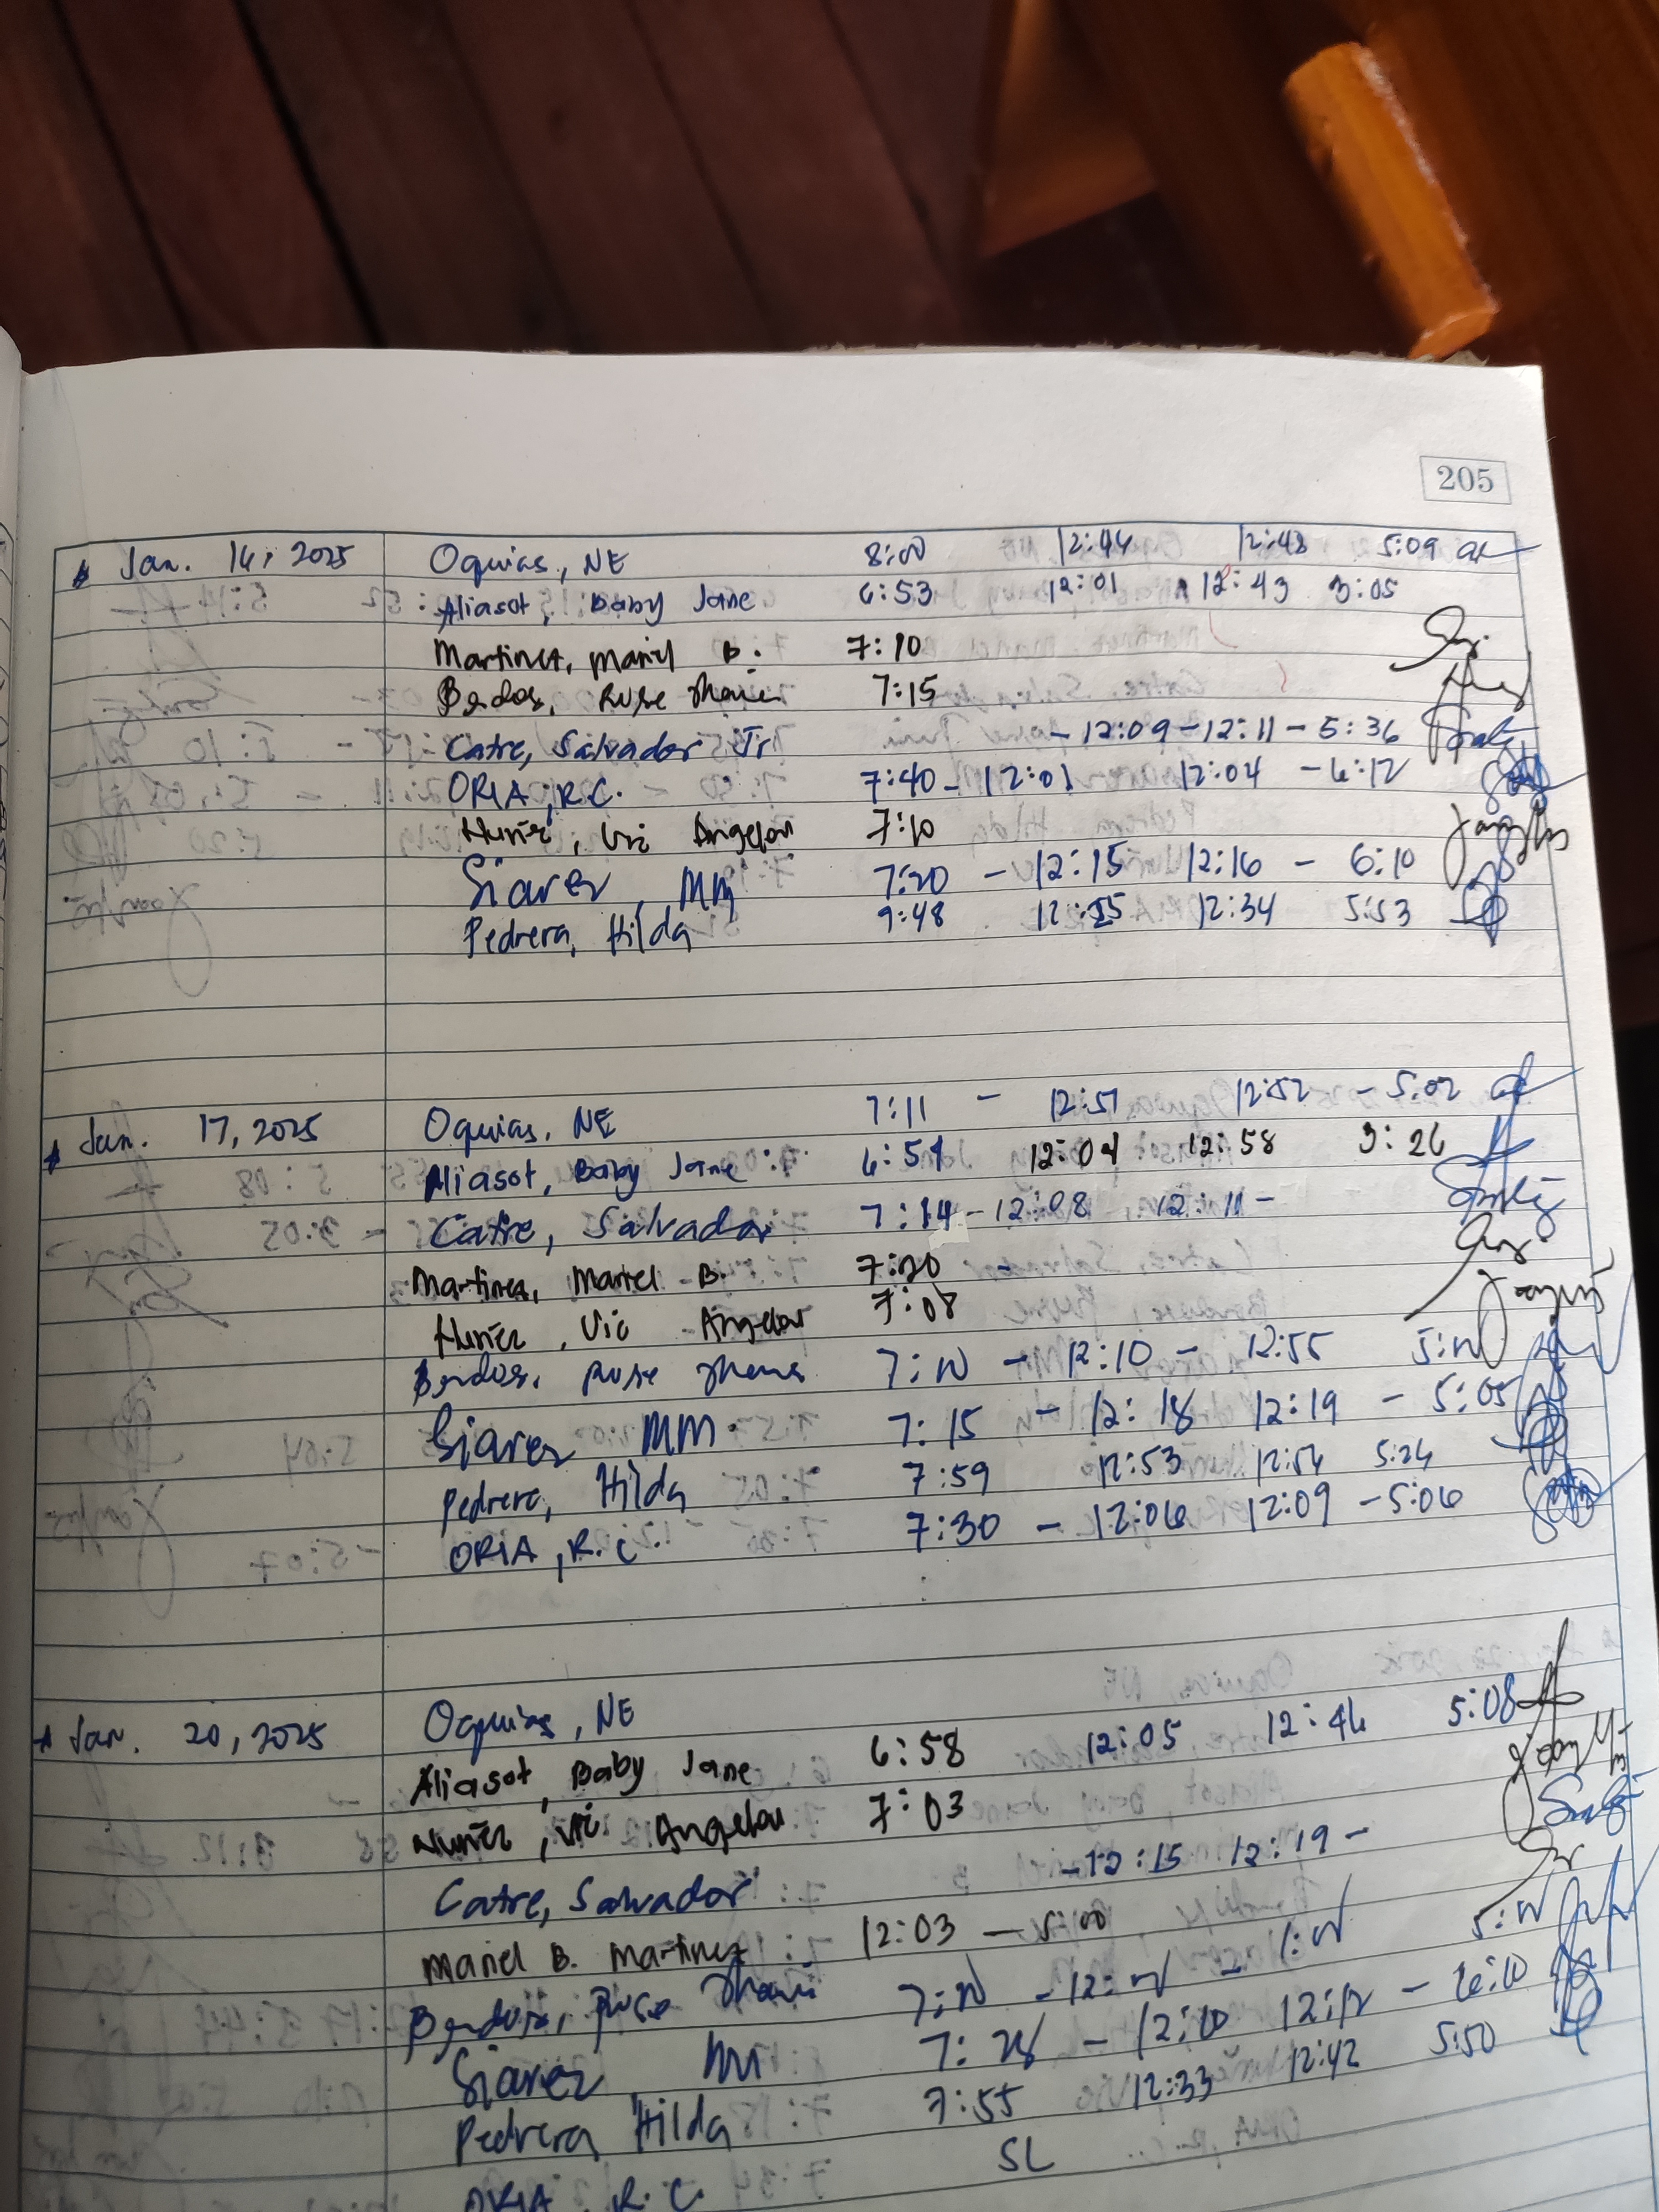 205
Jan. 16, 2025 Oquias, NE 8:00 12:46 12:48 5:09
Aliasot, Baby Jane 6:53 12:01 12:43 3:05
Martinez, Mariel B. 7:10
Bendos, Rose 7:15
Catre, Salvador Jr. - 12:09 - 12:11 - 5:36
ORIA, R.C. 7:40 - 12:01 12:04 - 6:12
Nuñez, Vic Angelou 7:10
Siarez, MM 7:20 - 12:15 12:16 - 6:10
Pedrera, Hilda 9:48 12:25 12:34 5:53
Jan. 17, 2025 Oquias, NE 7:11 - 12:51 12:52 - 5:02
Aliasot, Baby Jane 6:59 12:04 12:58 3:26
Catre, Salvador 7:14 - 12:08 12:11 -
Martinez, Mariel B. 7:20
Nuñez, Vic Angelou 7:08
Bendos, Rose 7:00 - 12:10 - 12:55 5:00
Siarez MM 7:15 - 12:18 12:19 - 5:05
Pedrera, Hilda 7:59 12:53 12:54 5:26
ORIA, R.C. 7:30 - 12:06 12:09 - 5:06
Jan. 20, 2025 Oquias, NE
Aliasot, Baby Jane 6:58 12:05 12:46 5:08
Nuñez, Vic Angelou 7:03
Catre, Salvador - 12:15 12:19 -
Mariel B. Martinez 12:03 - 5:00
Bendos, Rose 7:00 - 12:00 - 1:00 5:00
Siarez MM 7:28 - 12:10 12:12 - 6:10
Pedrera Hilda 7:55 12:33 12:42 5:50
ORIA, R.C. SL